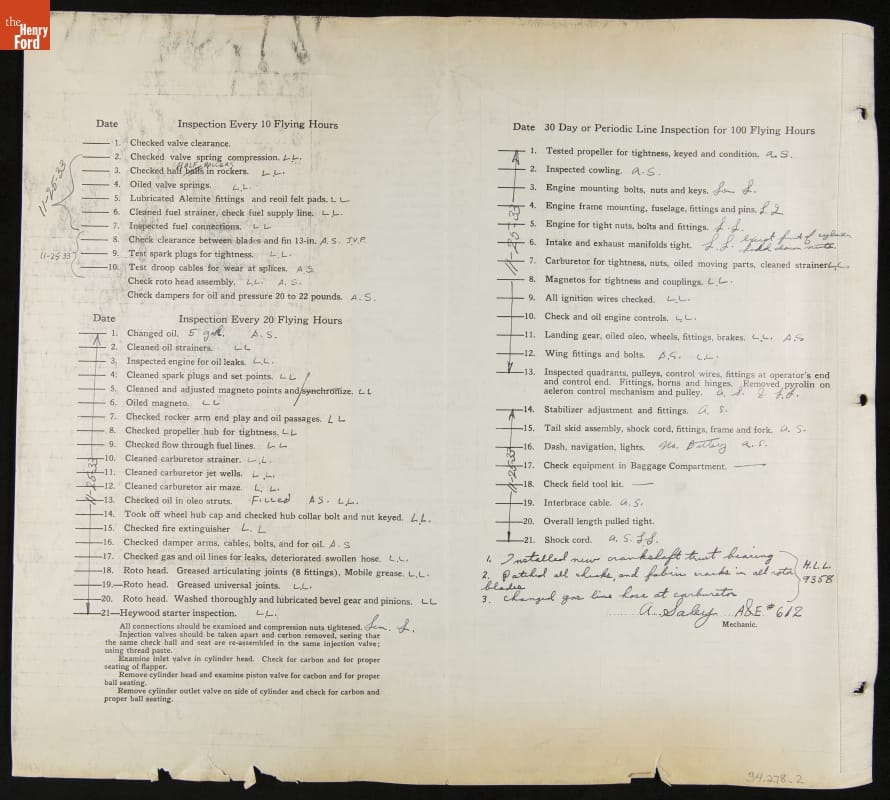 the
Henry
Ford
Date Inspection Every 10 Flying Hours
11-25-33
1. Checked valve clearance.
2. Checked valve spring compression. L.L.
HALF ROLLERS
3. Checked half balls in rockers. L.L.
4. Oiled valve springs. L.L.
5. Lubricated Alemite fittings and reoil felt pads. L L
6. Cleaned fuel strainer, check fuel supply line. L.L.
7. Inspected fuel connections. L L
8. Check clearance between blades and fin 13-in. A.S. J.V.P.
11-25-33
9. Test spark plugs for tightness. L.L.
10. Test droop cables for wear at splices. A.S
Check roto head assembly. L.L. A.S.
Check dampers for oil and pressure 20 to 22 pounds. A.S.
Date Inspection Every 20 Flying Hours
11-25-33
1. Changed oil. 5 gal. A.S.
2. Cleaned oil strainers. L L
3. Inspected engine for oil leaks. L.L.
4. Cleaned spark plugs and set points. L L
5. Cleaned and adjusted magneto points and/synchronize. L L
6. Oiled magneto. L L
7. Checked rocker arm end play and oil passages. L L
8. Checked propeller hub for tightness. L L
9. Checked flow through fuel lines. L L
10. Cleaned carburetor strainer. L.L.
11. Cleaned carburetor jet wells. L.L.
12. Cleaned carburetor air maze. L.L.
13. Checked oil in oleo struts. Filled AS. L.L.
14. Took off wheel hub cap and checked hub collar bolt and nut keyed. L.L.
15. Checked fire extinguisher L. L
16. Checked damper arms, cables, bolts, and for oil. A.S
17. Checked gas and oil lines for leaks, deteriorated swollen hose. L.L.
18. Roto head. Greased articulating joints (8 fittings). Mobile grease. L.L.
19.—Roto head. Greased universal joints. L.L.
20. Roto head. Washed thoroughly and lubricated bevel gear and pinions. L L
21—Heywood starter inspection. L.L.
All connections should be examined and compression nuts tightened. Len. L.
Injection valves should be taken apart and carbon removed, seeing that
the same check ball and seat are re-assembled in the same injection valve;
using thread paste.
Examine inlet valve in cylinder head. Check for carbon and for proper
seating of flapper.
Remove cylinder head and examine piston valve for carbon and for proper
ball seating.
Remove cylinder outlet valve on side of cylinder and check for carbon and
proper ball seating.
Date 30 Day or Periodic Line Inspection for 100 Flying Hours
11-25-33
1. Tested propeller for tightness, keyed and condition. A.S.
2. Inspected cowling. A.S.
3. Engine mounting bolts, nuts and keys. Len L.
4. Engine frame mounting, fuselage, fittings and pins. L L
5. Engine for tight nuts, bolts and fittings. L.L.
6. Intake and exhaust manifolds tight. L.L. except front of cylinder
hold down nuts.
7. Carburetor for tightness, nuts, oiled moving parts, cleaned strainer L.L.
8. Magnetos for tightness and couplings. L.L.
9. All ignition wires checked. L.L.
10. Check and oil engine controls. L.L.
11. Landing gear, oiled oleo, wheels, fittings, brakes. L.L. A.S
12. Wing fittings and bolts. A.S. L.L.
13. Inspected quadrants, pulleys, control wires, fittings at operator's end
and control end. Fittings, horns and hinges. Removed pyrolin on
aeleron control mechanism and pulley. A. S. & L.L.
11-25-33
14. Stabilizer adjustment and fittings. A. S.
15. Tail skid assembly, shock cord, fittings, frame and fork. A. S.
16. Dash, navigation, lights. No Battery A.S.
17. Check equipment in Baggage Compartment. —
18. Check field tool kit. —
19. Interbrace cable. A.S.
20. Overall length pulled tight.
21. Shock cord. A.S. L.L.
1. Installed new crankshaft trust bearing
2. Patched all chinks, and fabric cracks in all rotor
blades
3. Changed gas line hose at carburetor
H.L.L.
9358
A. Saley A&E #612
Mechanic.
34.278.2